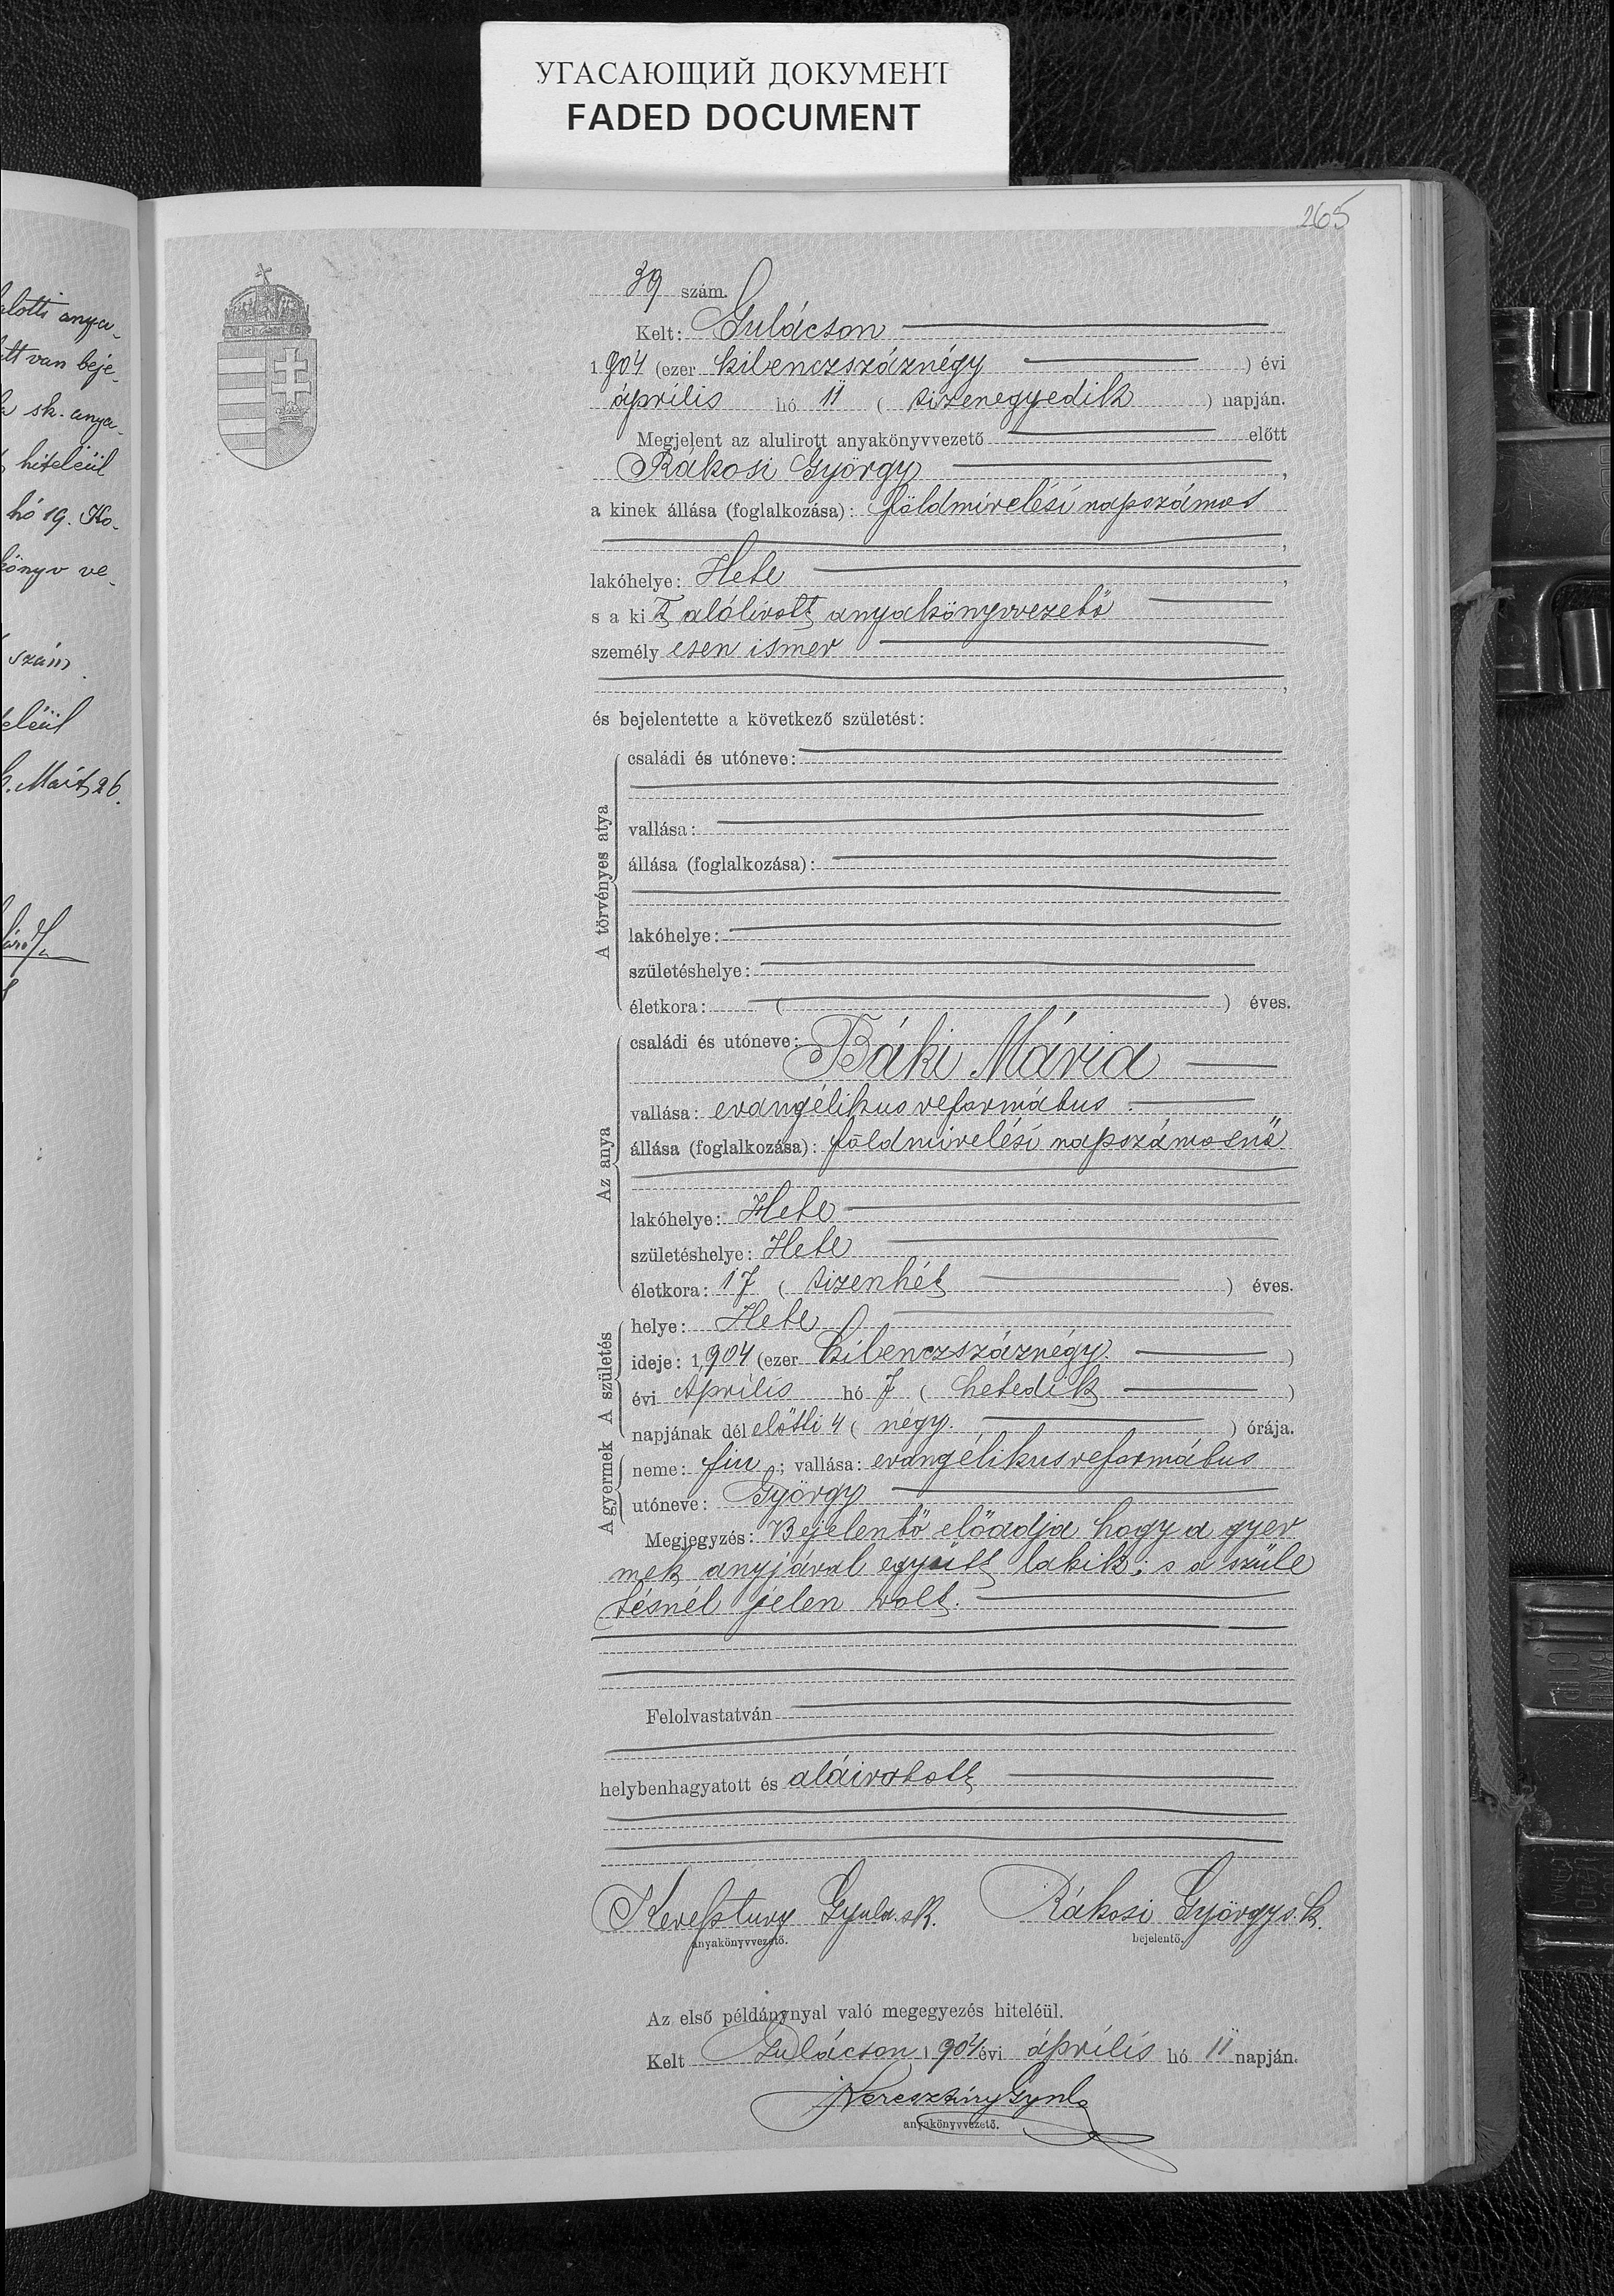 УГАСАЮЩИЙ ДОКУМЕНТ
FADED DOCUMENT
265
alotti anya-
tt van beje-
sk. anya-
hiteléül
hó 19. Ko-
könyv ve-
szám
teléül
Márt 26.
39 szám.
Kelt: Gulácson
1904 (ezer kilenczszáznégy ) évi
április hó 11 ( tizenegyedik ) napján.
Megjelent az alulirott anyakönyvvezető előtt
Rákosi György ,
a kinek állása (foglalkozása): földmívelési napszámos
,
lakóhelye: Hete ,
s a kit alólirott anyakönyvvezető
személy esen ismer
,
és bejelentette a következő születést:
A törvényes atya
családi és utóneve:
vallása:
állása (foglalkozása):
lakóhelye:
születéshelye:
életkora: ( ) éves.
Az anya
családi és utóneve: Báki Mária
vallása: evangélikus református
állása (foglalkozása): földmívelési napszámosnő
lakóhelye: Hete
születéshelye: Hete
életkora: 17 ( tizenhét ) éves.
A születés
helye: Hete
ideje: 1904 (ezer kilenczszáznégy. )
évi Április hó 7 ( hetedik )
napjának dél előtti 4 ( négy. ) órája.
A gyermek
neme: fiu ; vallása: evangélikus református
utóneve: György
Megjegyzés: Bejelentő előadja hogy a gyer
mek anyjával együtt lakik; s a szüle
tésnél jelen volt.
Felolvastatván
helybenhagyatott és aláiratott
Keresztury Gyula sk. Rákosi György s. k.
anyakönyvvezető. bejelentő.
Az első példánynyal való megegyezés hiteléül.
Kelt Gulácson, 1904 évi április hó 11 napján.
Keresztúry Gyula
anyakönyvvezető.